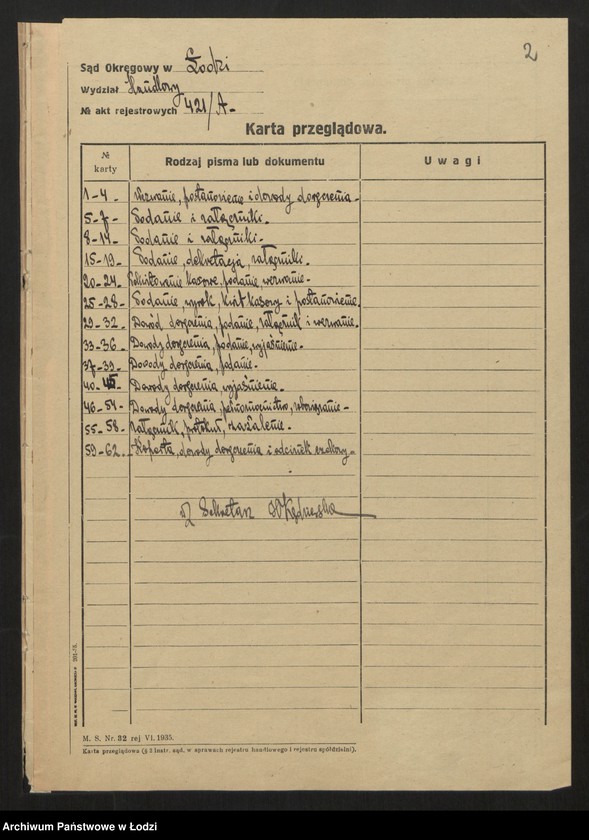 2
Sąd Okręgowy w Łodzi
Wydział Handlowy
№ akt rejestrowych 421/A-
Karta przeglądowa.
№ karty Rodzaj pisma lub dokumentu Uwagi
1-4- Wezwanie, postanowienie i dowody doręczenia-
5-7- Podanie i załączniki-
8-14- Podanie i załączniki-
15-19- Podanie, dekretacja, załączniki.
20-24- kasowe, podanie, wezwanie-
25-28- Podanie, wyrok, kwit kasowy i postanowienie.
29-32- Dowód doręczenia, podanie, załącznik i wezwanie-
33-36- Dowody doręczenia, podanie, wyjaśnienie-
37-39- Dowody doręczenia, podanie-
40-45- Dowody doręczenia, wyjaśnienia-
46-54- Dowody doręczenia, pełnomocnictwo, zobowiązanie-
55-58- Załącznik, protokuł, zażalenie-
59-62- Koperta, dowody doręczenia i odcinek czekowy-
Sekretarz
M. S. Nr. 32 rej VI. 1935.
Karta przeglądowa (§ 3 instr. sąd. w sprawach rejestru handlowego i rejestru spółdzielni).
Archiwum Państwowe w Łodzi